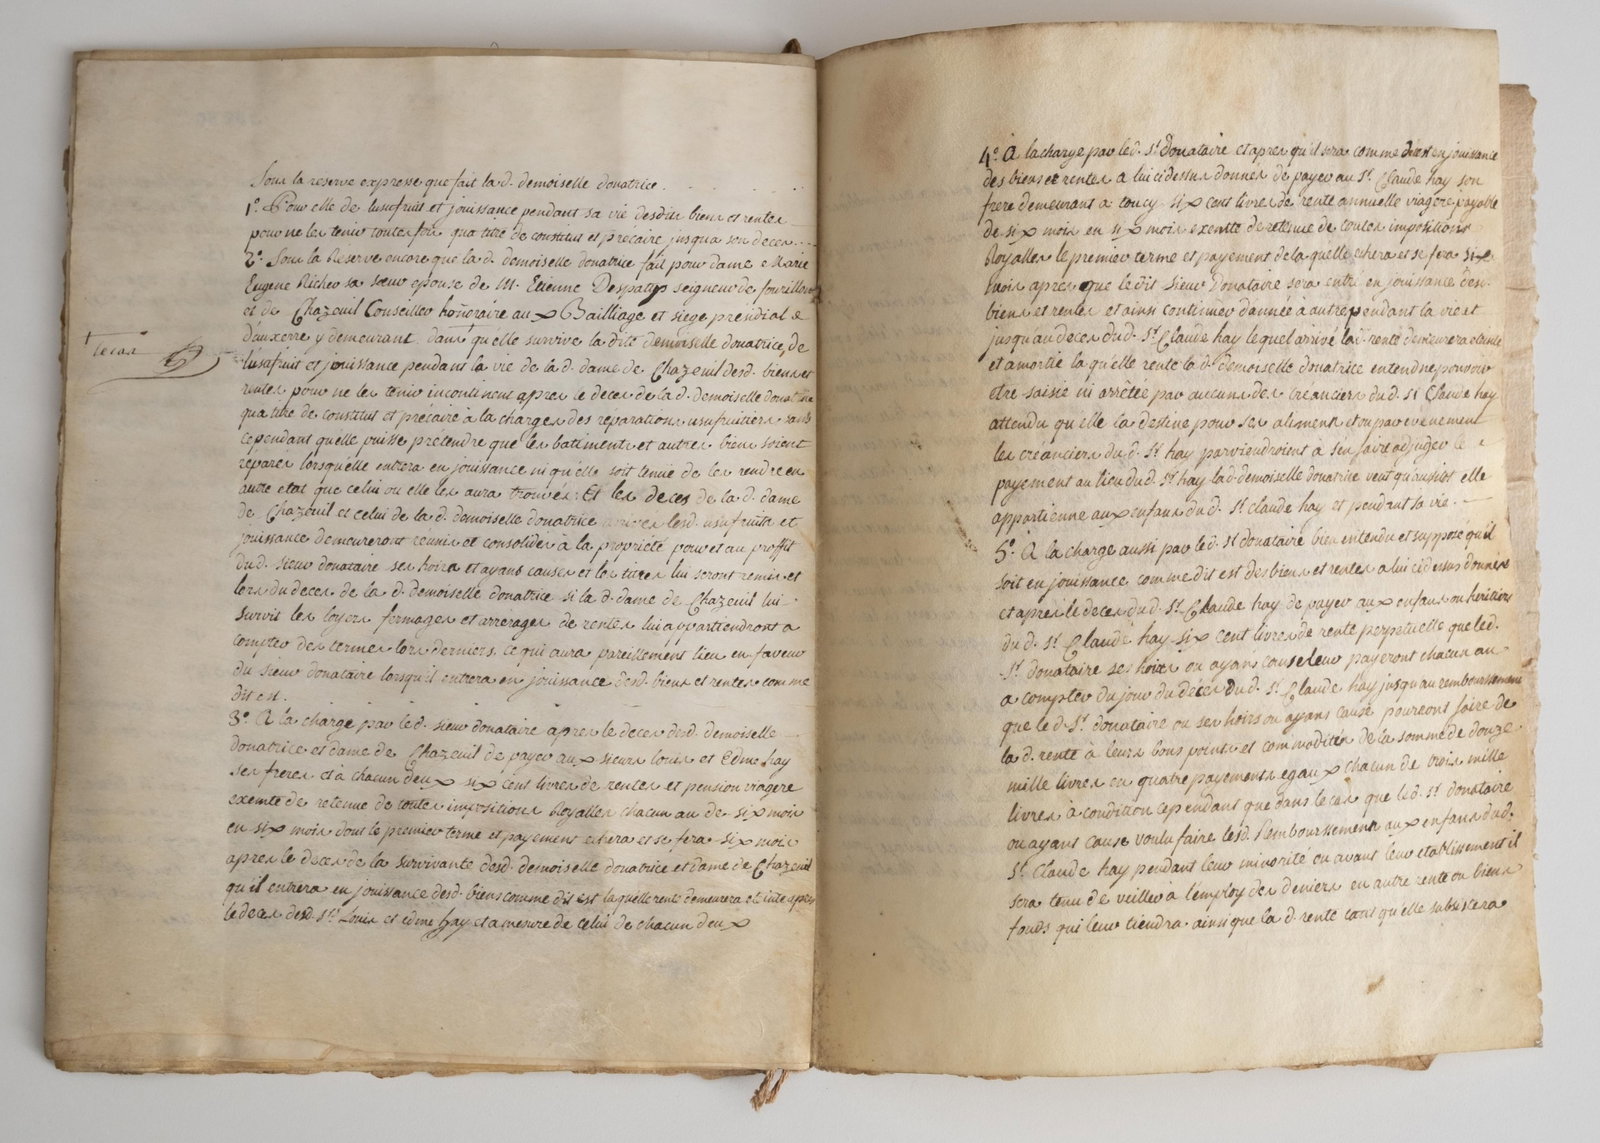 Sous la reserve expresse que fait la d. demoiselle donatrice
1°. Pour elle de l'usufruit et jouissance pendant sa vie desdits biens et rentes
pour ne les tenir toutes fois qu'a titre de constitut et précaire jusqu'a son deces
2°. Sous la Reserve encore que la d. demoiselle donatrice fait pour dame Marie
Eugene Richer sa sœur epouse de M. Etienne Despatys seigneur de
et de Chazeuil Conseiller honoráire aux Bailliage et siege presidial
d'auxerre y demeurant, dans qu'elle survive la dite demoiselle donatrice, de
† le cas
l'usufruit et jouissance pendant la vie de la d. dame de Chazeuil desd. biens et
rentes pour ne les tenir incontinent apres le deces de la d. demoiselle donatrice
qu'a titre de constitut et précaire à la charge des réparations usufruitieres sans
cependant qu'elle puisse prétendre que les batiments et autres biens soient
réparés lorsqu'elle entrera en jouissance ni qu'elle soit tenue de les rendre en
autre etat que celui ou elle les aura trouvés: Et les deces de la d. dame
de Chazeuil et celui de la d. demoiselle donatrice lesd. usufruits et
jouissance demeureront reunis et consolidés à la propriété pour et au proffit
dud. sieur donataire ses hoirs et ayans causes et les titres lui seront remis et
lors du deces de la d. demoiselle donatrice si la d. dame de Chazeuil lui
survit les loyers fermages et arrerages de rentes lui appartiendront a
compter des termes lors derniers. ce qui aura pareillement lieu en faveur
du sieur donataire lorsqu'il entrera en jouissance desd. biens et rentes comme
dit est.
3°. A la charge par le d. sieur donataire apres le deces desd. demoiselle
donatrice et dame de Chazeuil de payer aux sieurs Louis et Edme hay
ses freres et à chacun deux six cent livres de rentes et pension viagere
exemte de retenue de toutes impositions Royalles chacun an de six mois
en six mois dont le premier terme et payement echera et se fera six mois
apres le deces de la survivante desd. demoiselle donatrice et dame de Chazeuil
qu'il entrera en jouissance desd. biens comme dit est laquelle rente demeurera eteinte apres
le deces desd. Srs. Louis et edme hay et a mesure de celui de chacun deux
4°. A la charge par le d. Sr. donataire et apres qu'il sera comme dit est en jouissance
des biens et rentes a lui cidessus donnés de payer au Sr. Claude hay son
frere demeurant a toucy six cent livres de rente annuelle viagere payable
de six mois en six mois exemte de retenue de toutes impositions
Royalles le premier terme et payement de laquelle echera et se fera six
mois apres que le dit sieur donataire sera entré en jouissance des
biens et rentes et ainsi continuer d'année à autre pendant la vie et
jusqu'au deces dud. Sr. Claude hay lequel arrivé lad. rente demeurera eteinte
et amortie la qu'elle rente la d. demoiselle donatrice entend ne pouvoir
etre saisie ni arrêtée par aucuns des créanciers du d. Sr Claude hay
attendu qu'elle la destine pour ses aliments et ou par evenement
les créanciers du d. Sr. hay parviendroient à s'en faire adjuger le
payement au lieu dud. Sr. hay lad. demoiselle donatrice veut qu'aussitot elle
appartienne aux enfans du d. Sr. Claude hay et pendant sa vie.
5°. A la charge aussi par le d. Sr donataire bien entendu et supposé qu'il
soit en jouissance comme dit est des biens et rentes a lui cidessus donnés
et apres le deces du d. Sr. Claude hay de payer aux enfans ou heritiers
du d. Sr. Claude hay six cent livres de rente perpetuelle que le d.
Sr. donataire ses hoirs ou ayans cause leur payeront chacun an
a compter du jour du déces dud. Sr. Claude hay jusqu'au remboursement
que le d. Sr. donataire ou ses hoirs ou ayans cause pourront faire de
la d. rente à leurs bons points et commodités de la somme de douze
mille livres en quatre payements egaux chacun de trois mille
livres à condition cependant que dans le cas que le d. Sr. donataire
ou ayans cause voulu faire lesd. Remboursements aux enfans dud.
Sr. Claude hay pendant leur minorité ou avant leur etablissement il
sera tenu de veiller à l'employ des deniers en autre rente ou biens
fonds qui leur tiendra ainsi que la d. rente tant qu'elle subsistera